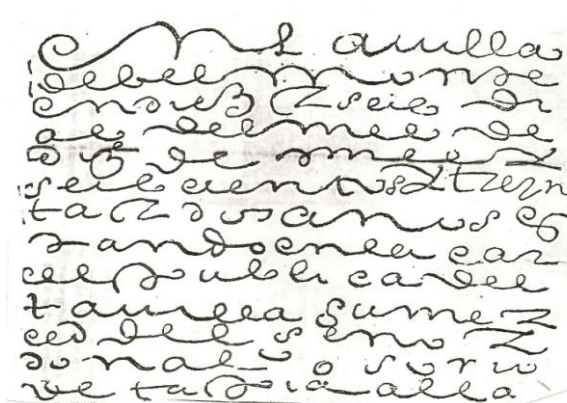 En la uilla
de bel monte
en diez Z seis di
as del mes de
de mill Z
seiscientos Z trein
ta Z dos anos es
tando en la car
cel publica de es
ta uilla su mer
ced del señor
don al° osorio
de tapia